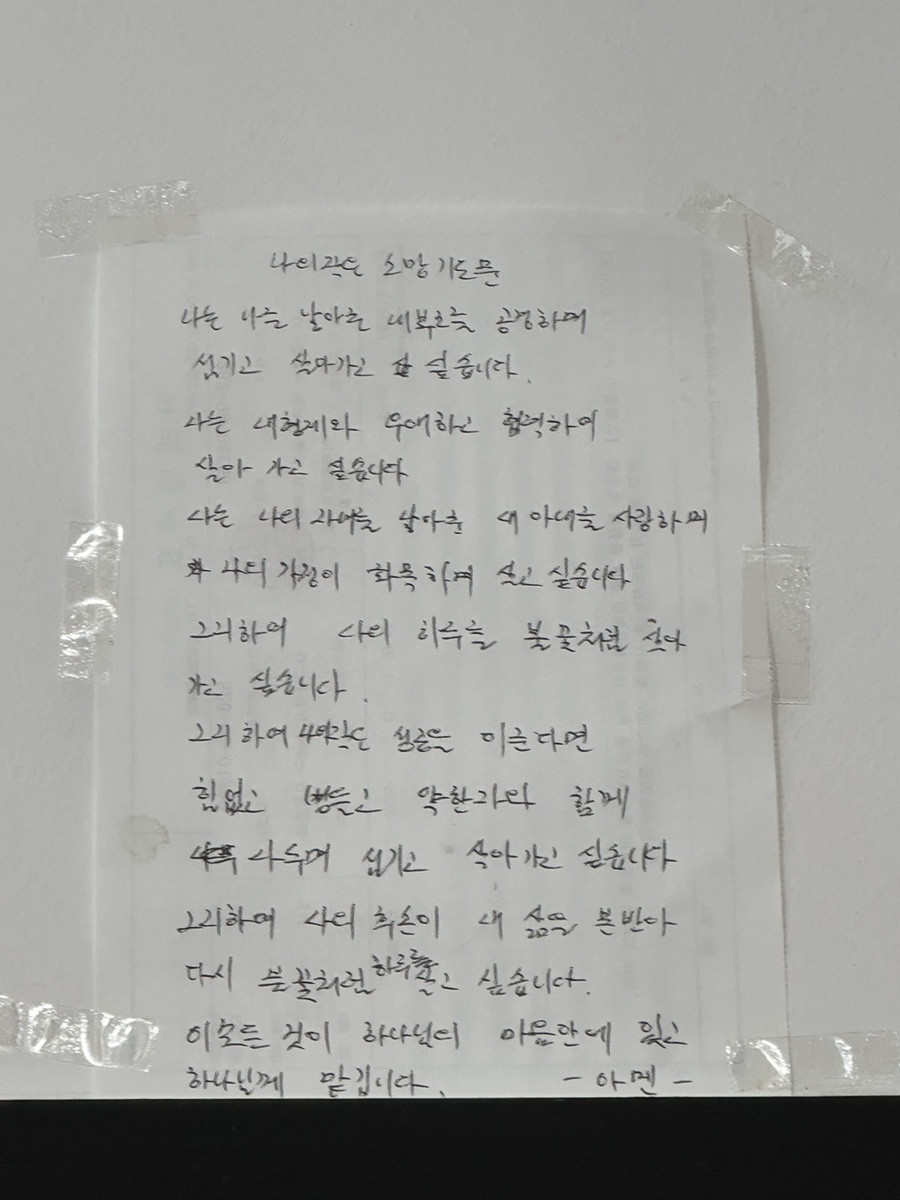 나의 소망기도문
나는 나를 낳아준 내부모를 공경하며
섬기고 살아가고 싶습니다.
나는 내형제와 우애하고 협력하여
살아 가고 싶습니다
나는 나의 자녀를 낳아준 내 아내를 사랑하며
나의 가정이 화목하게 살고 싶습니다
그리하여 나의 하루를 불꽃처럼 살아
가고 싶습니다.
그리하여 성공을 이룬다면
힘없고 병들고 약한자와 함께
나누며 섬기고 살아가고 싶습니다
그리하여 나의 후손이 내 삶을 본받아
다시 불꽃처럼 하루를 살고 싶습니다.
이모든 것이 하나님의 마음안에 있고
하나님께 맡깁니다. - 아멘 -